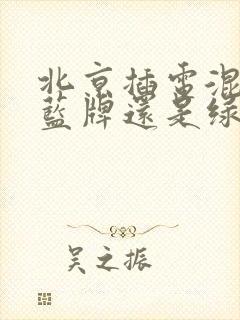 北京插电混
蓝牌还是绿
吴之振